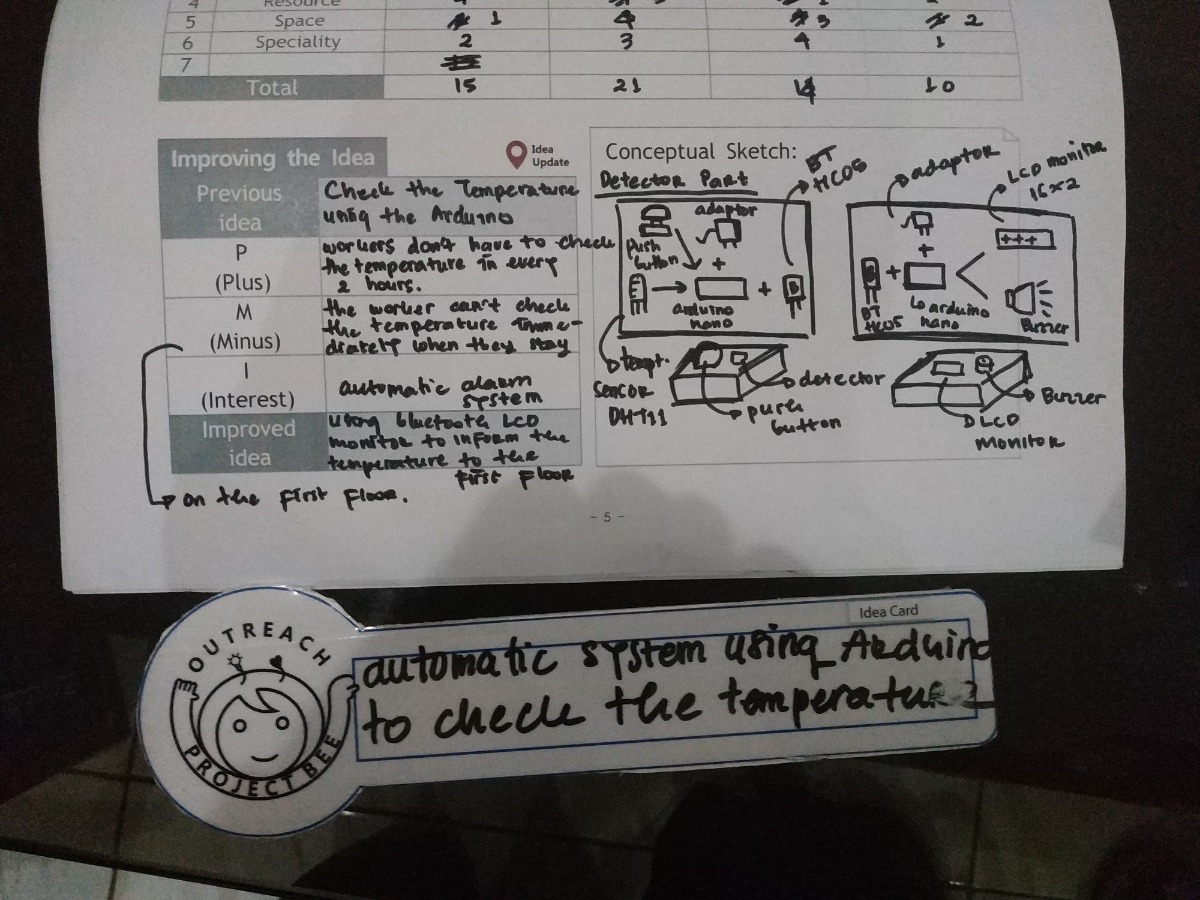 4 Resource
5 Space 1 4 3 2
6 Speciality 2 3 4 1
7
Total 15 21 14 10
Improving the Idea
Idea
Update
Previous
idea
Check the Temperature
using the Arduino
P
(Plus)
workers don't have to check
the temperature in every
2 hours.
M
(Minus)
the worker can't check
the temperature imme-
diately when they stay
on the first floor.
I
(Interest)
automatic alarm
system
Improved
idea
using bluetooth LCD
monitor to inform the
temperature to the
first floor
Conceptual Sketch:
Detector Part
BT
HC05
adaptor
Push
button
+
+
arduino
nano
tempt.
sensor
DHT11
detector
push
button
adaptor
LCD monitor
16x2
+++
+
+
BT
HC05
arduino
nano
Buzzer
Buzzer
LCD
monitor
- 5 -
OUTREACH
PROJECT BEE
Idea Card
automatic system using Arduino
to check the temperature